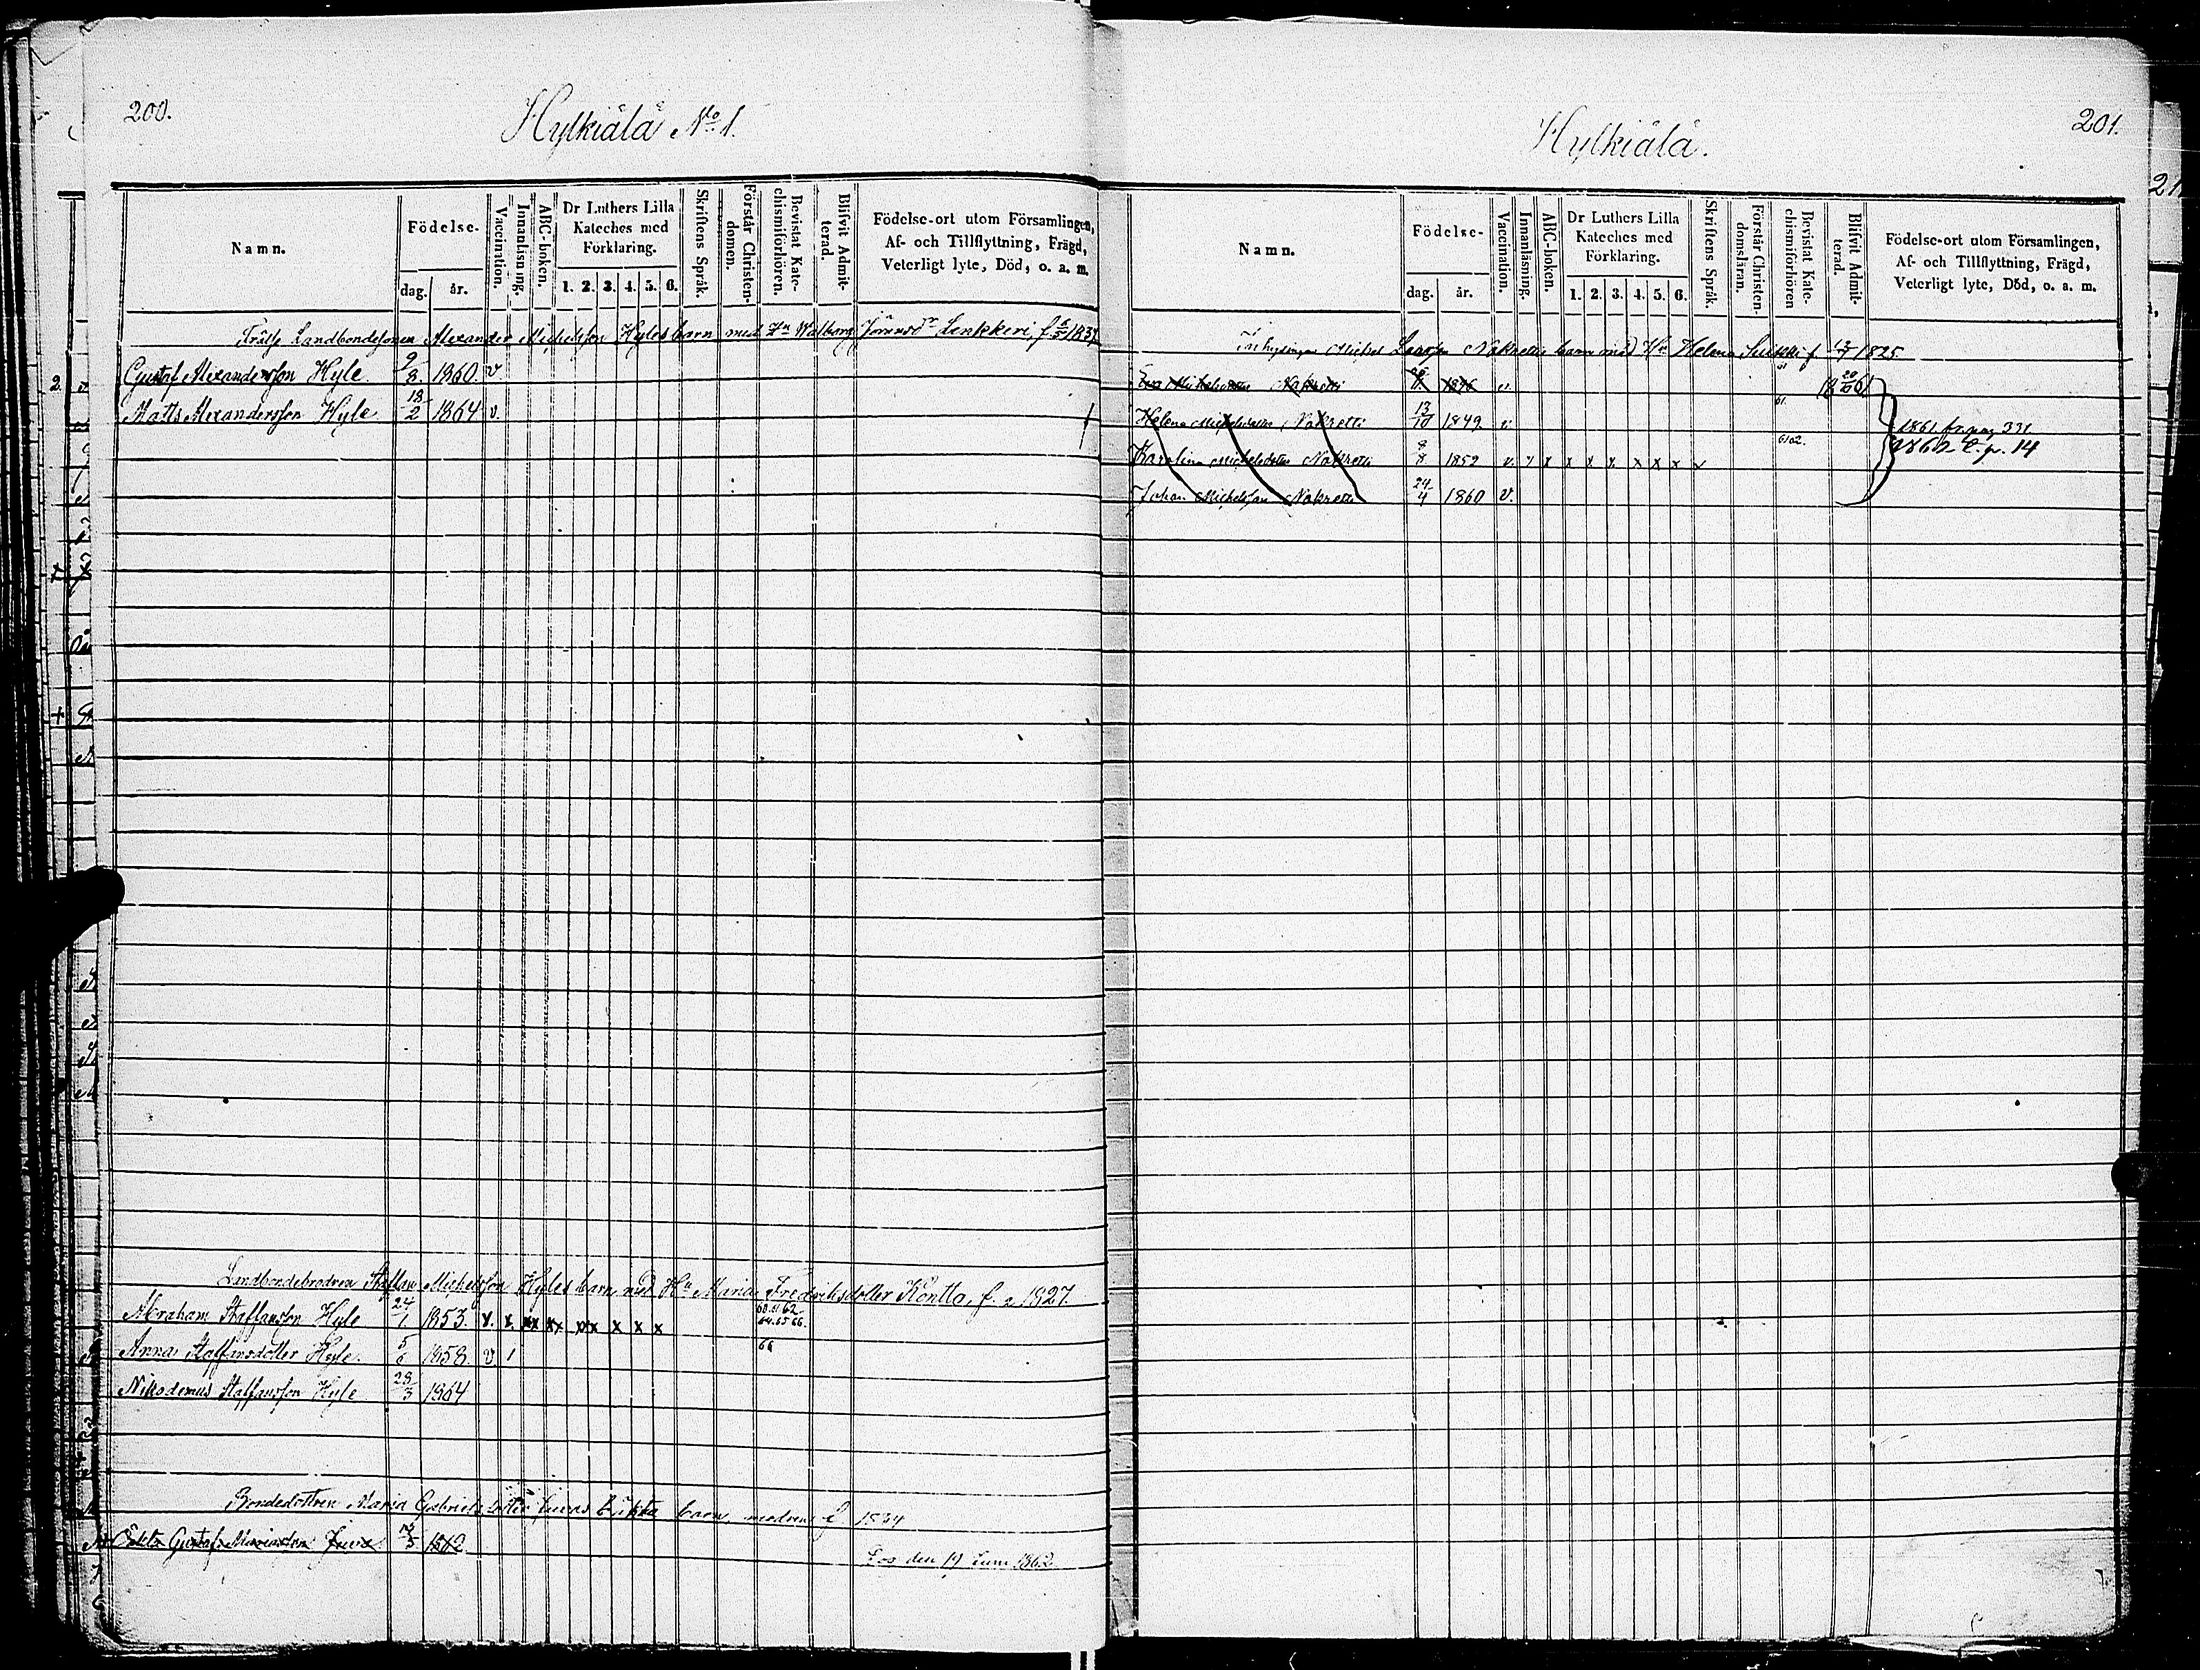 200.
Hylkiälä No 1.
Namn.
Födelse-
dag.
år.
Vaccination.
Innanläsning.
ABC-boken.
Dr Luthers Lilla
Kateches med
Förklaring.
1. 2. 3. 4. 5. 6.
Skriftens Språk.
Förstår Christen-
domen.
Bevistat Kate-
chismiförhören.
Blifvit Admit-
terad.
Födelse-ort utom Församlingen,
Af- och Tillflyttning, Frägd,
Veterligt lyte, Död, o. a. m.
Frälse Landbondesonen Alexander Michelsson Hyles barn med Hu Walborg Lenkkeri, f.
Gustaf Alexandersson Hyle. 9/8. 1860. v
Matts Alexandersson Hyle 18/2 1864 v.
Landbondebrodren Staffan Michelsson Hyles barn med Hu Maria Fredriksdotter Kontto, f. 1827.
Abraham Staffansson Hyle 24/1 1853. v. x. xx xx xx x x x 60.61.62 64.65.66.
Anna Staffansdotter Hyle. 5/6 1858. v 1 66
Nikodemus Staffansson Hyle 28/3 1864
Bondedottren Maria Gabrielsdotter barn, modren f. 1834
Gustaf Juva 1862
den 19 Juni 1862
201.
Hylkiälä.
Namn.
Födelse-
dag.
år.
Vaccination.
Innanläsning.
ABC-boken.
Dr Luthers Lilla
Kateches med
Förklaring.
1. 2. 3. 4. 5. 6.
Skriftens Språk.
Förstår Christen-
domsläran.
Bevistat Kate-
chismiförhören
Blifvit Admit-
terad.
Födelse-ort utom Församlingen,
Af- och Tillflyttning, Frägd,
Veterligt lyte, Död, o. a. m.
Michel Larsson Nokretts barn med Hu Helena f. 1825
Eva Michelsdotter Nokretti 1846 v. 61 18 20/10 61
Helena Michelsdotter Nokretti 13/10 1849 v. 61. 1861 fr. pag 331
Karolina Michelsdotter Nokretti 1852 v. x x x x x x x 6162. 1862 p. 14
Johan Michelsson Nokretti 24/4 1860 v.